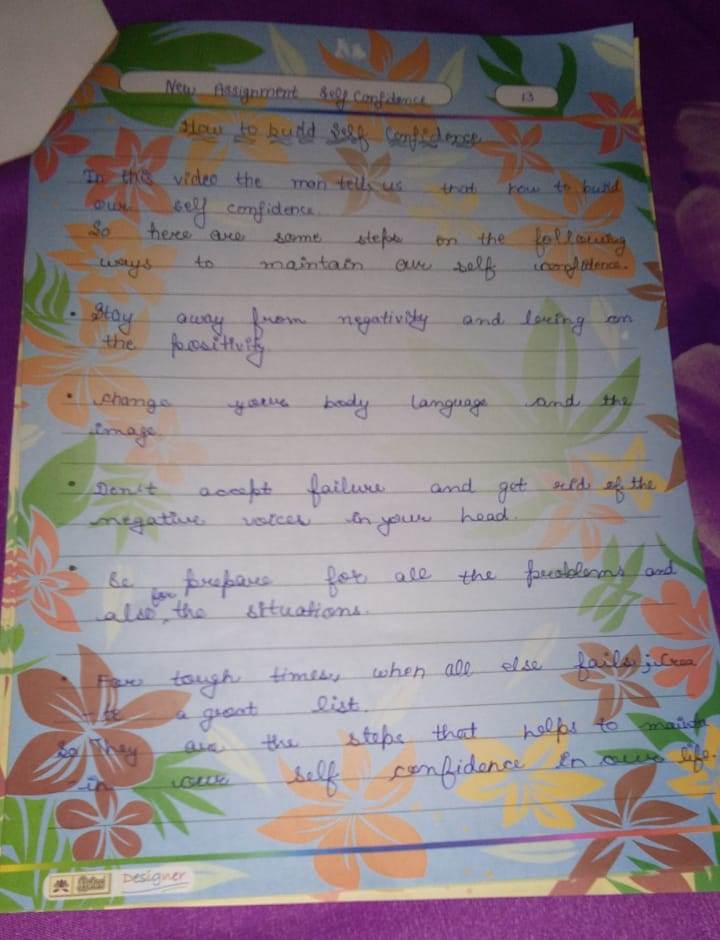 New Assignment Self Confidence
13
How to build Self Confidence
In this video the man tells us that how to build
our self confidence.
So here are some steps on the following
ways to maintain our self confidence.
• Stay away from negativity and loving on
the positivity.
• change your body language and the
image.
• Don't accept failure and get rid of the
negative voices in your head.
• Be prepare for all the problems and
also for the situations.
• For tough times, when all else fails; Crea
-te a great list.
So They are the steps that helps to mainta
-in our self confidence in our life.
Designer